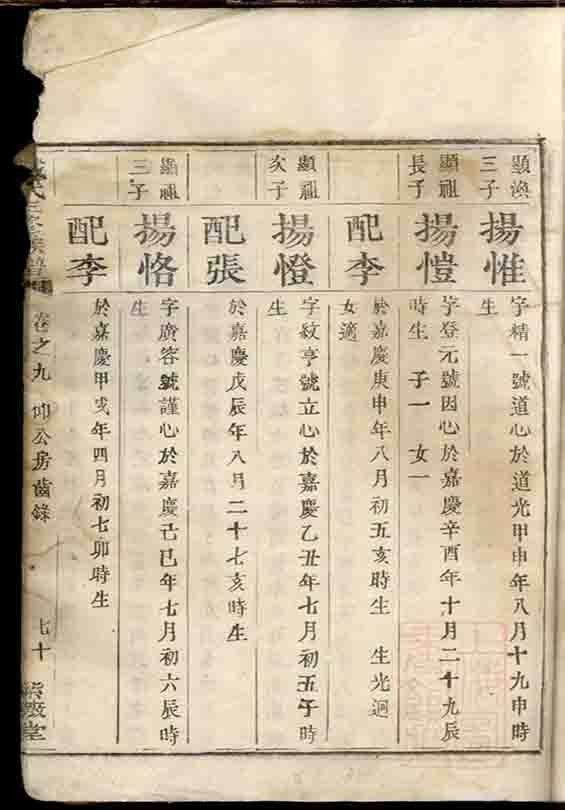 顯渙
三子
揚惟
字精一號道心於道光甲申年八月十九申時
生
顯祖
長子
揚愷
字登元號因心於嘉慶辛酉年十月二十九辰
時生 子一 女一
配李
於嘉慶庚申年八月初五亥時生 生光迥
女適
顯祖
次子
揚憕
字紋亨號立心於嘉慶乙丑年七月初五午時
生
配張
於嘉慶戊辰年八月二十七亥時生
顯祖
三子
揚恪
字廣容號謹心於嘉慶己巳年七月初六辰時
生
配李
於嘉慶甲戌年四月初七卯時生
氏三修族譜
卷之九 仰公房齒錄
七十
堂